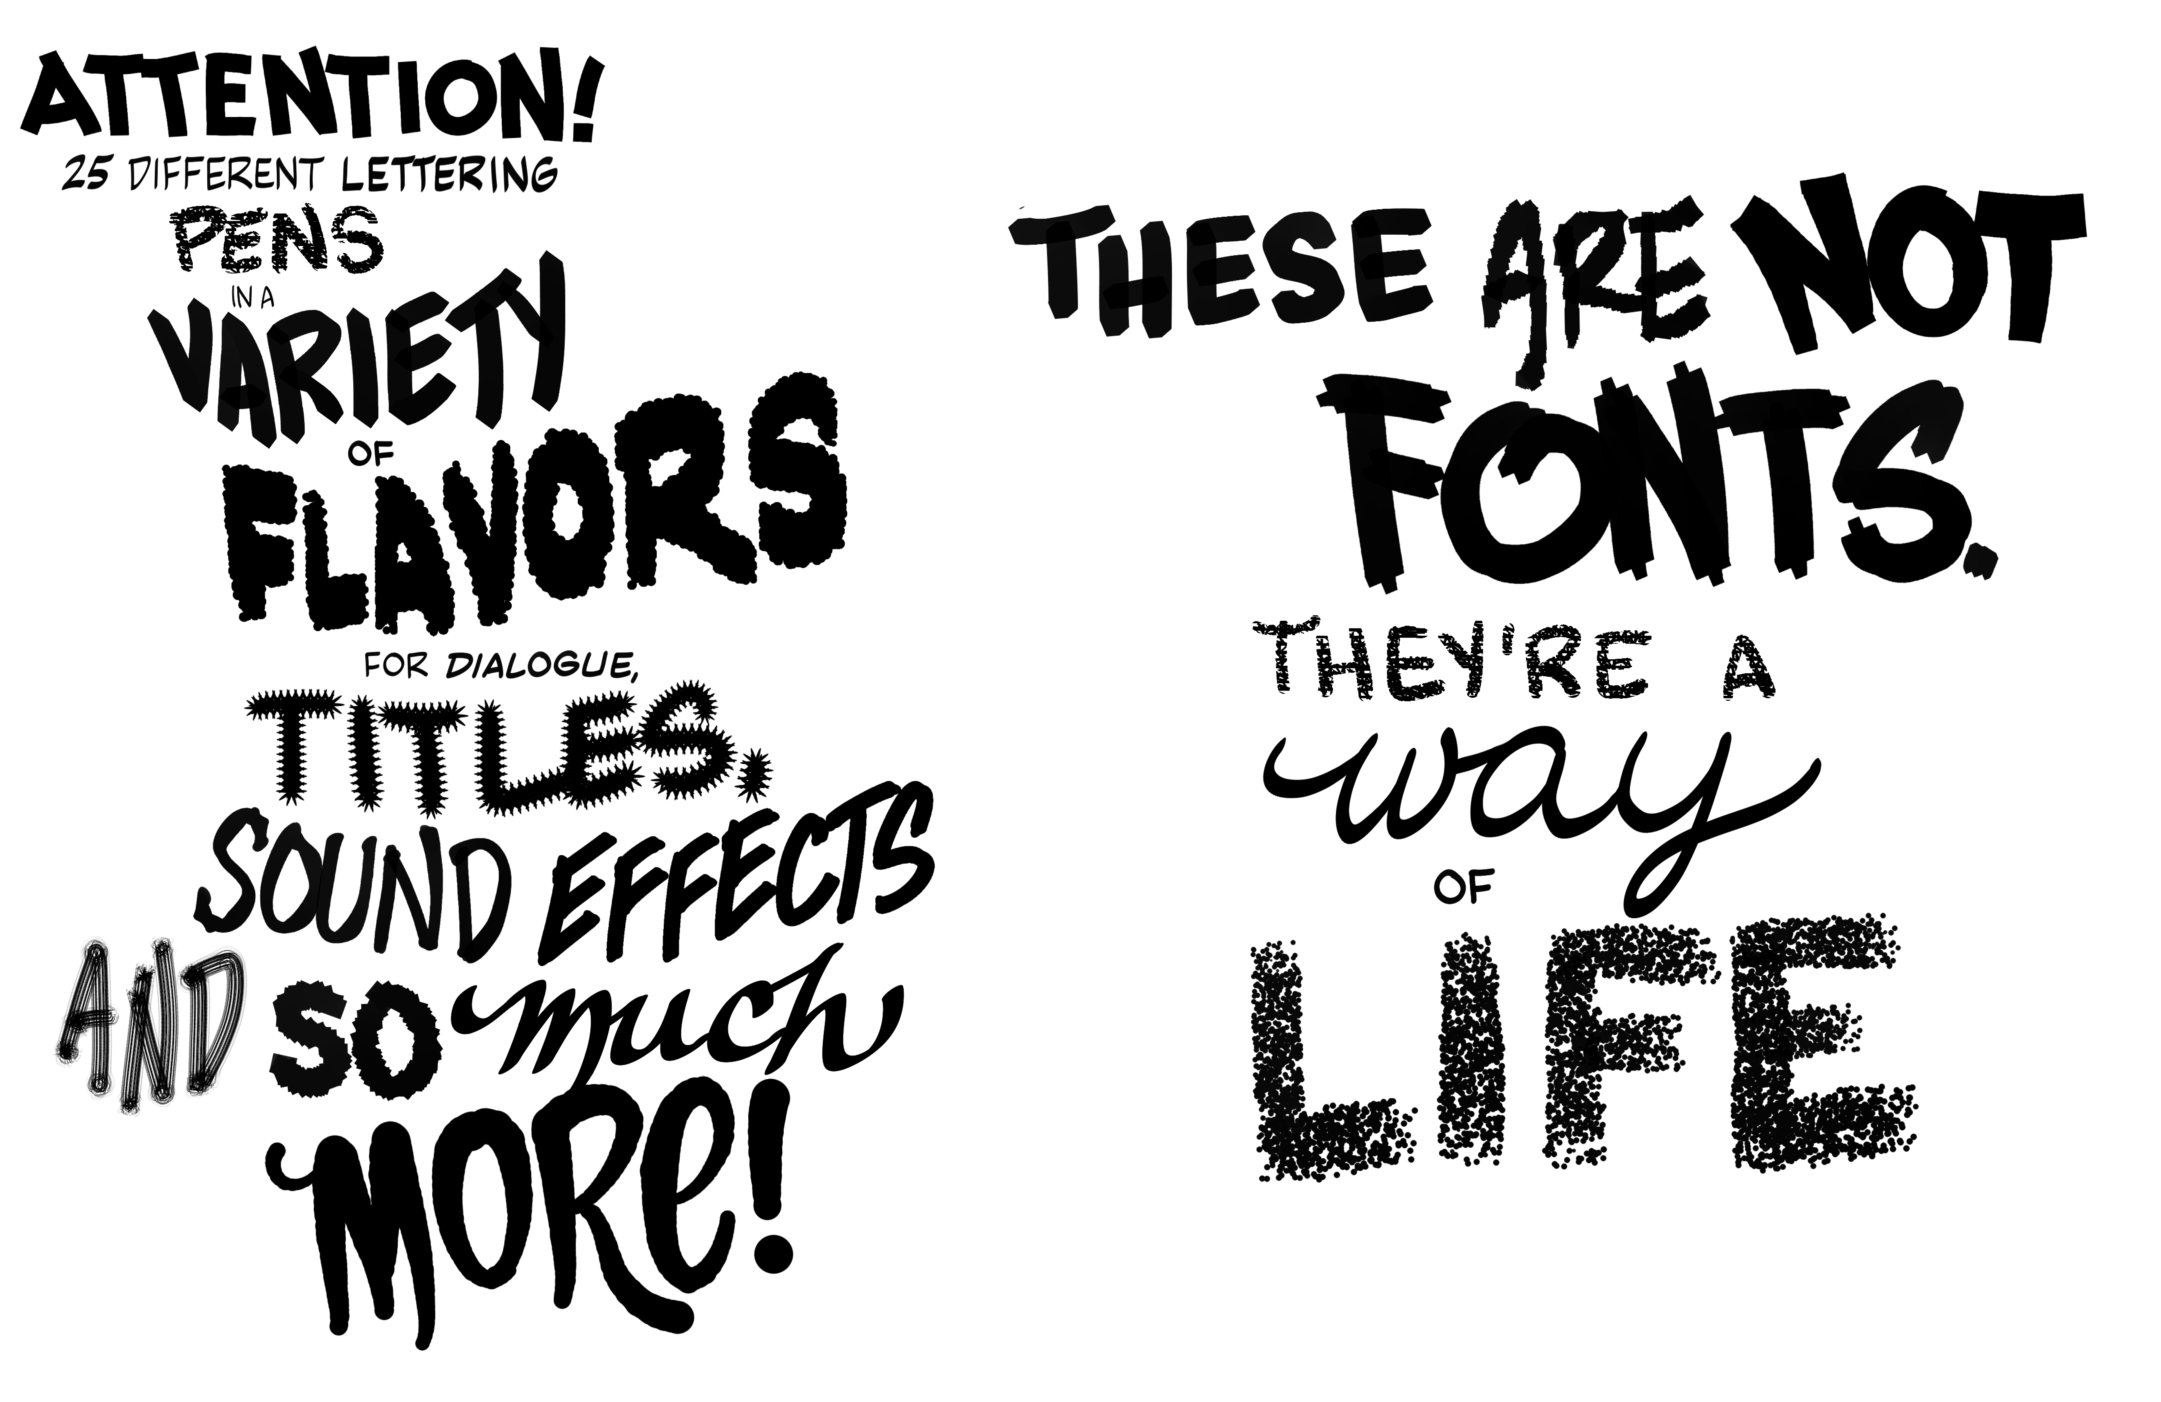 ATTENTION!
25 DIFFERENT LETTERING
PENS
IN A
VARIETY
OF
FLAVORS
FOR DIALOGUE,
TITLES,
SOUND EFFECTS
AND SO much
MORe!
THESE ARE NOT
FONTS.
THEY'RE A
way
OF
LIFE